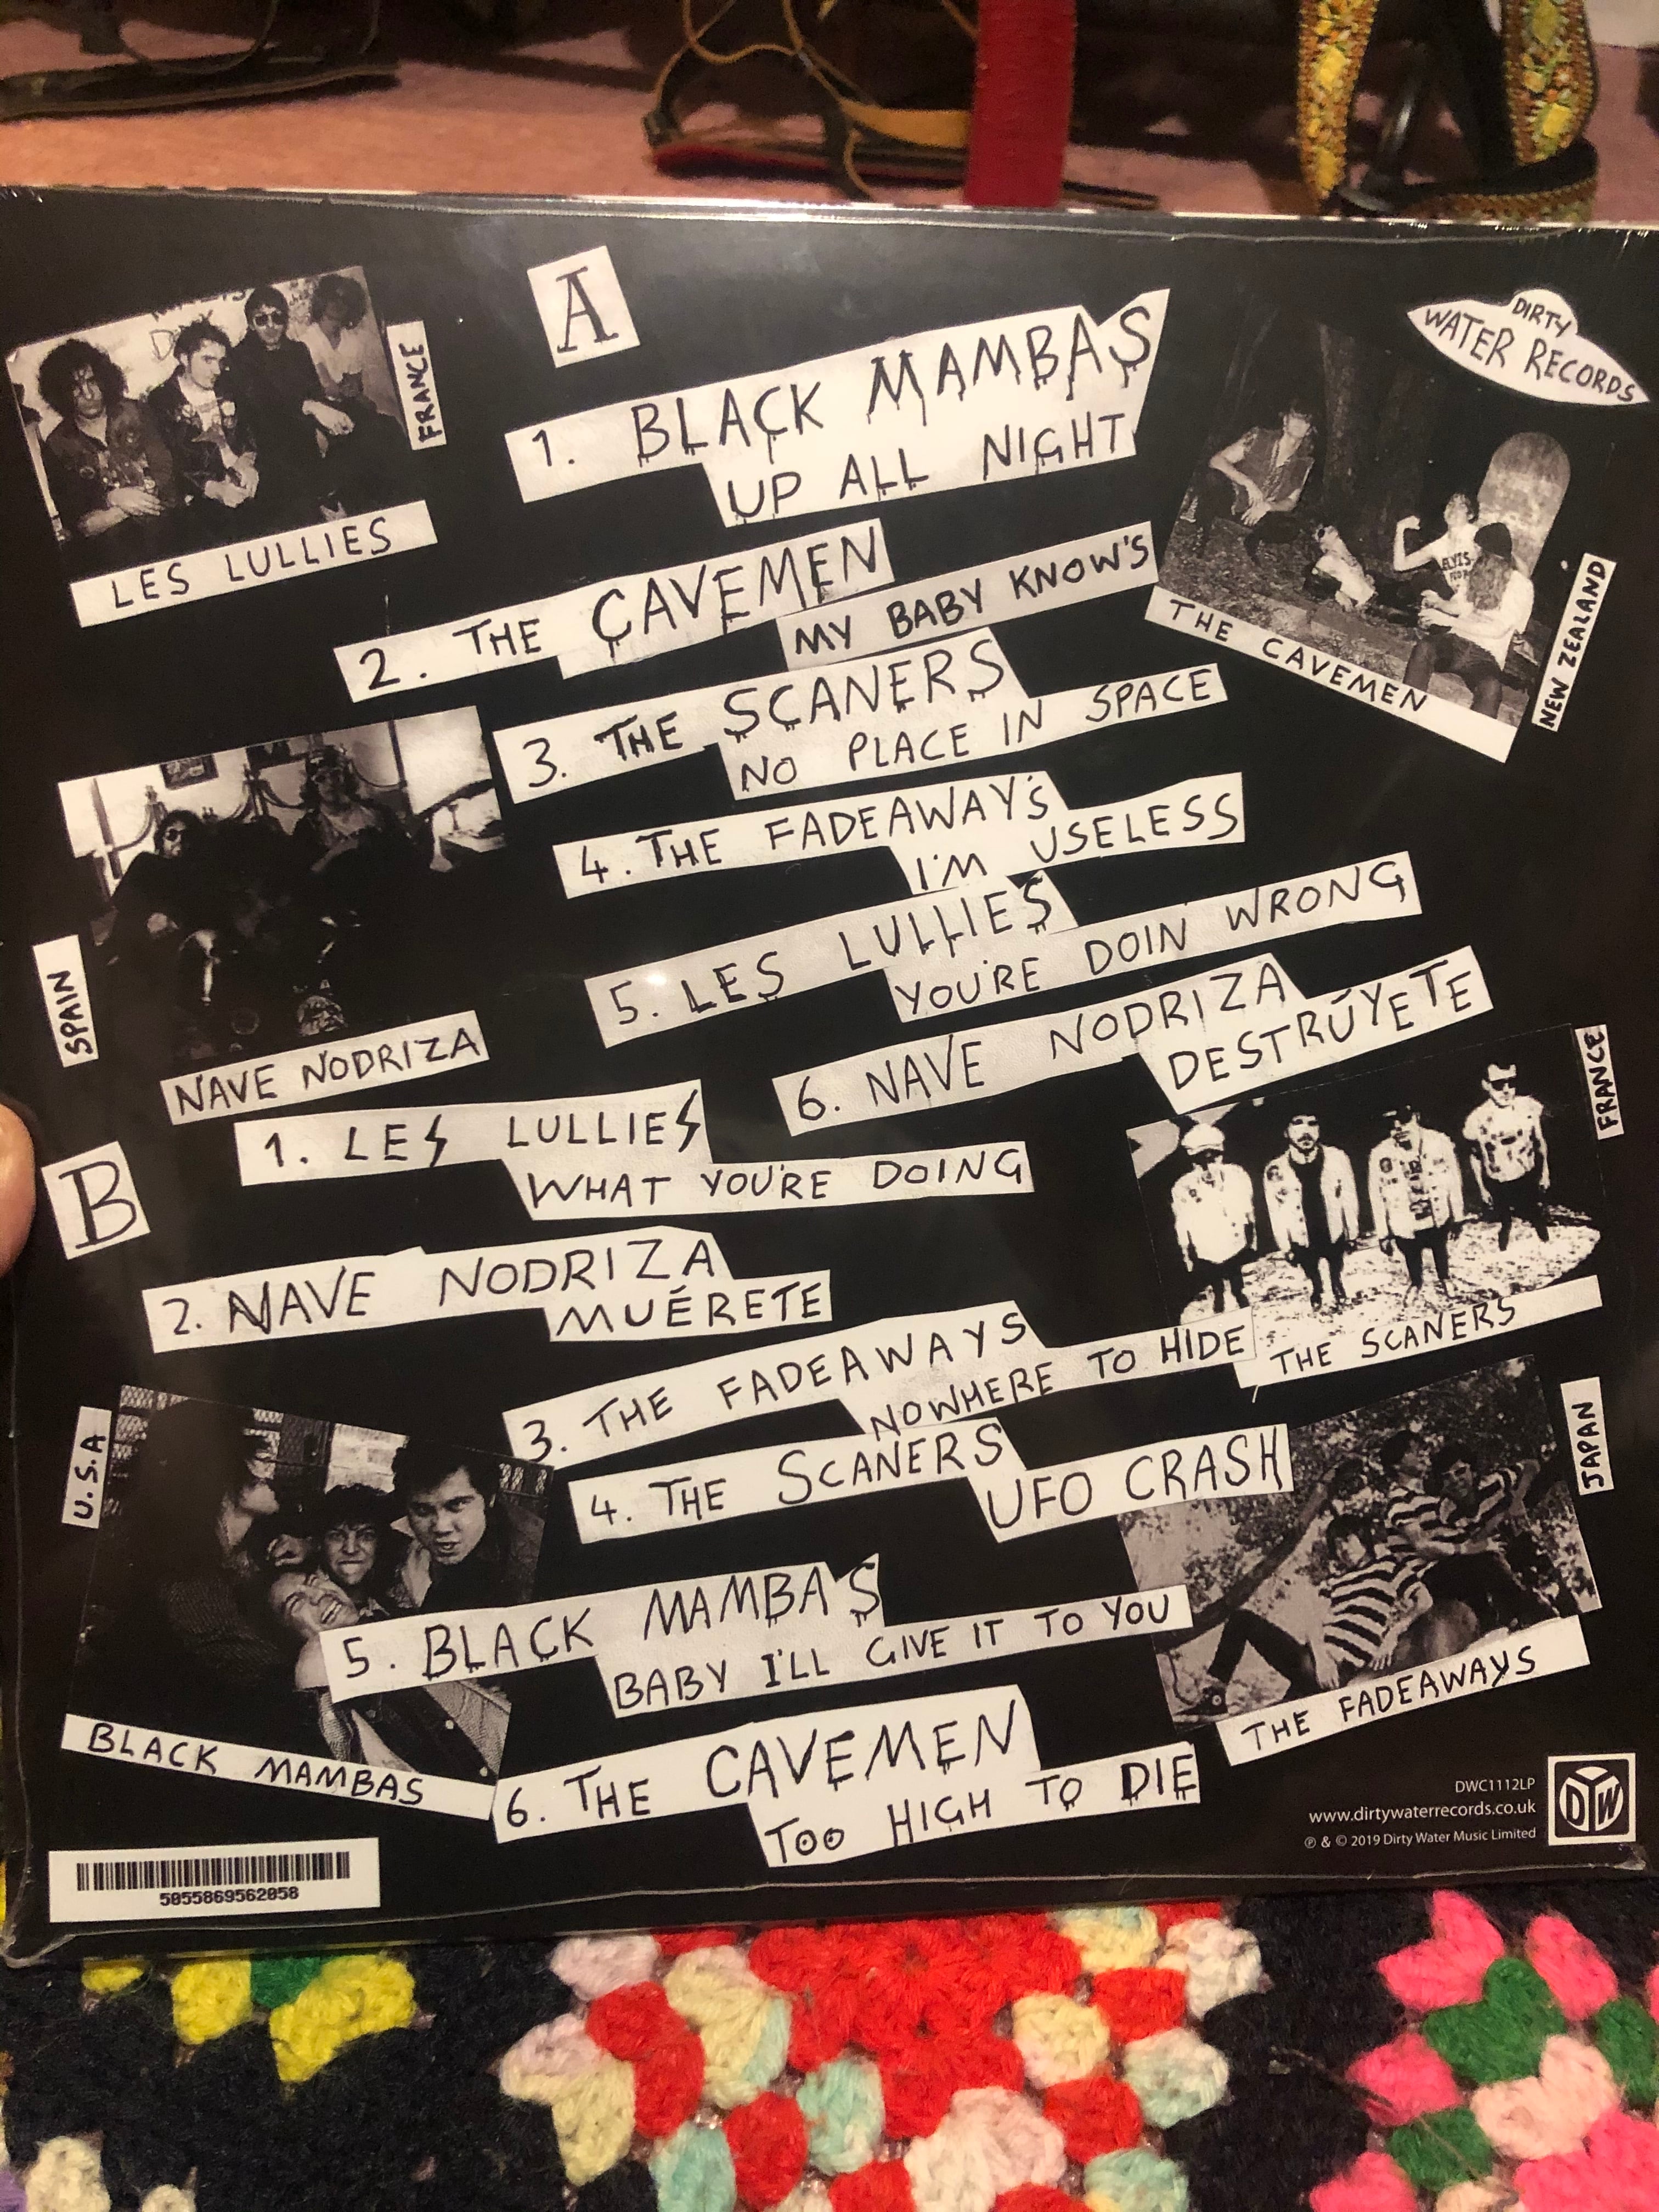 A
DIRTY
WATER RECORDS
FRANCE
LES LULLIES
1. BLACK MAMBAS
UP ALL NIGHT
2. THE CAVEMEN
MY BABY KNOW'S
3. THE SCANERS
NO PLACE IN SPACE
4. THE FADEAWAY'S
I'M USELESS
5. LES LULLIES
YOU'RE DOIN WRONG
6. NAVE NODRIZA
DESTRÚYETE
ELVIS
THE CAVEMEN
NEW ZEALAND
SPAIN
NAVE NODRIZA
FRANCE
THE SCANERS
B
1. LES LULLIES
WHAT YOU'RE DOING
2. NAVE NODRIZA
MUÉRETE
3. THE FADEAWAYS
NOWHERE TO HIDE
4. THE SCANERS
UFO CRASH
5. BLACK MAMBAS
BABY I'LL GIVE IT TO YOU
6. THE CAVEMEN
TOO HIGH TO DIE
U.S.A
BLACK MAMBAS
JAPAN
THE FADEAWAYS
5055869562058
DWC1112LP
www.dirtywaterrecords.co.uk
℗ & © 2019 Dirty Water Music Limited
DW